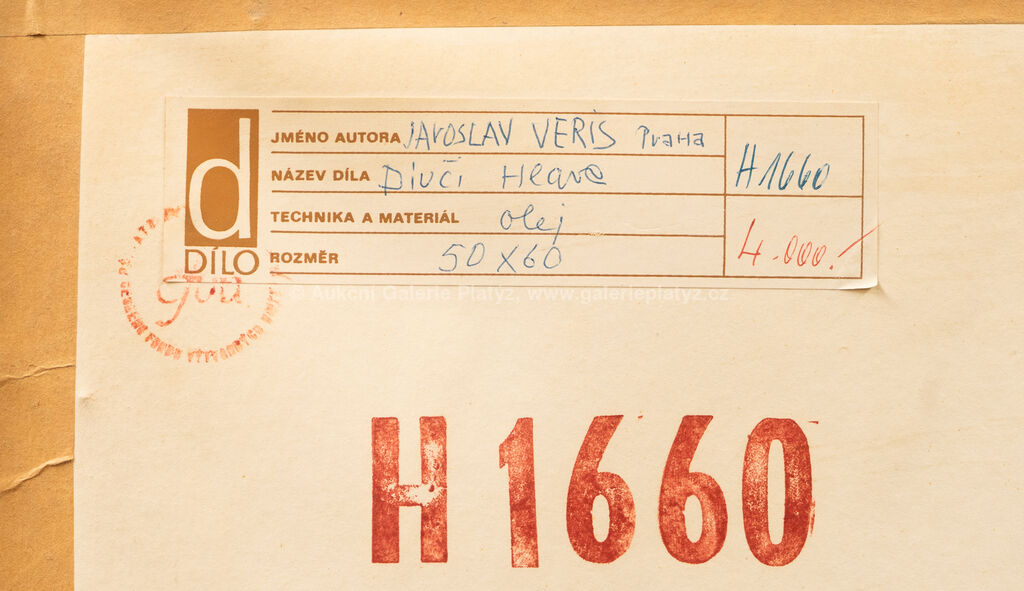 d
DÍLO
JMÉNO AUTORA JAROSLAV VERIS Praha
NÁZEV DÍLA Dívčí Hlava
TECHNIKA A MATERIÁL olej
ROZMĚR 50 x 60
H1660
4.000.-
© Aukční Galerie Platýz, www.galerieplatyz.cz
ČESKÉHO FONDU VÝTVARNÝCH
H1660